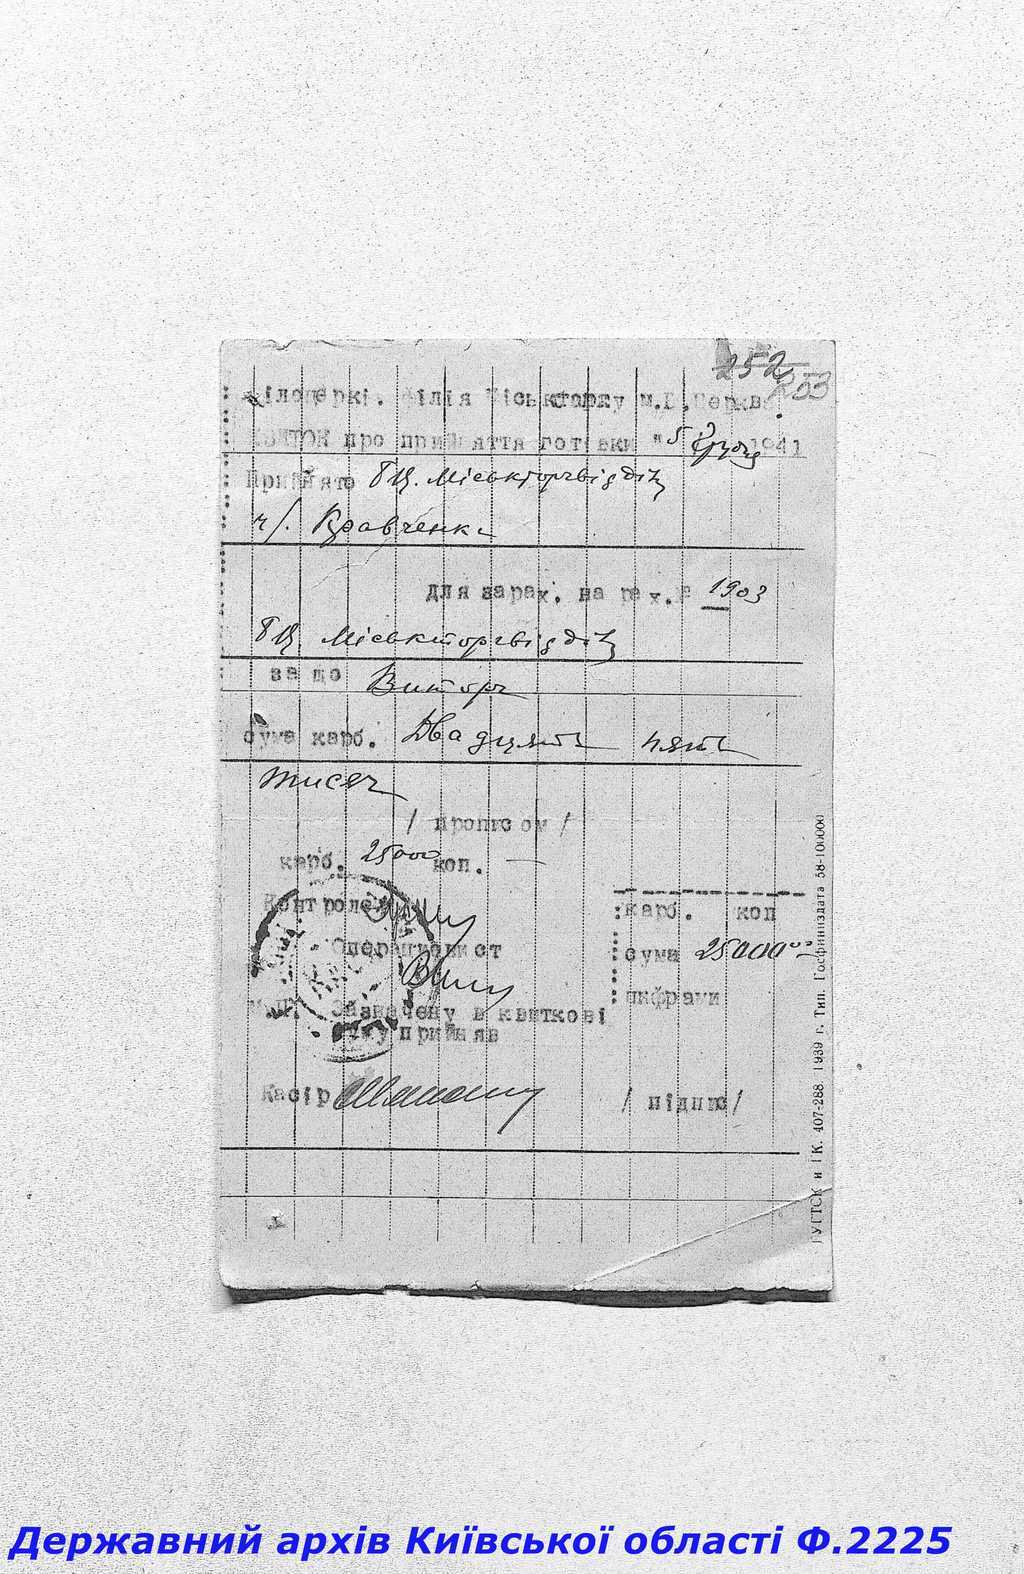 252
253
Білоцеркі. філія Міськбанку м.Б.Церква.
КВИТОК про прийняття готівки "5" грудня 1941
Прийнято БЦ. Міськторгвідділ
ч/. Кравченка
для зарах. на рах.№ 1903
БЦ Міськторгвідділ
за що Виторг
сума карб. Двадцять пять
тисяч
/ прописом /
карб. 25000 коп. —
Контролер
карб. коп
Операціоніст
сума 25000 00
цифрами
М.П. Зазначену в квиткові
суму прийняв
Касір / підпис/
ГУГТСК и ГК. 407-288. 1939 г. Тип. Госфиниздата 58-100000
Державний архів Київської області Ф.2225